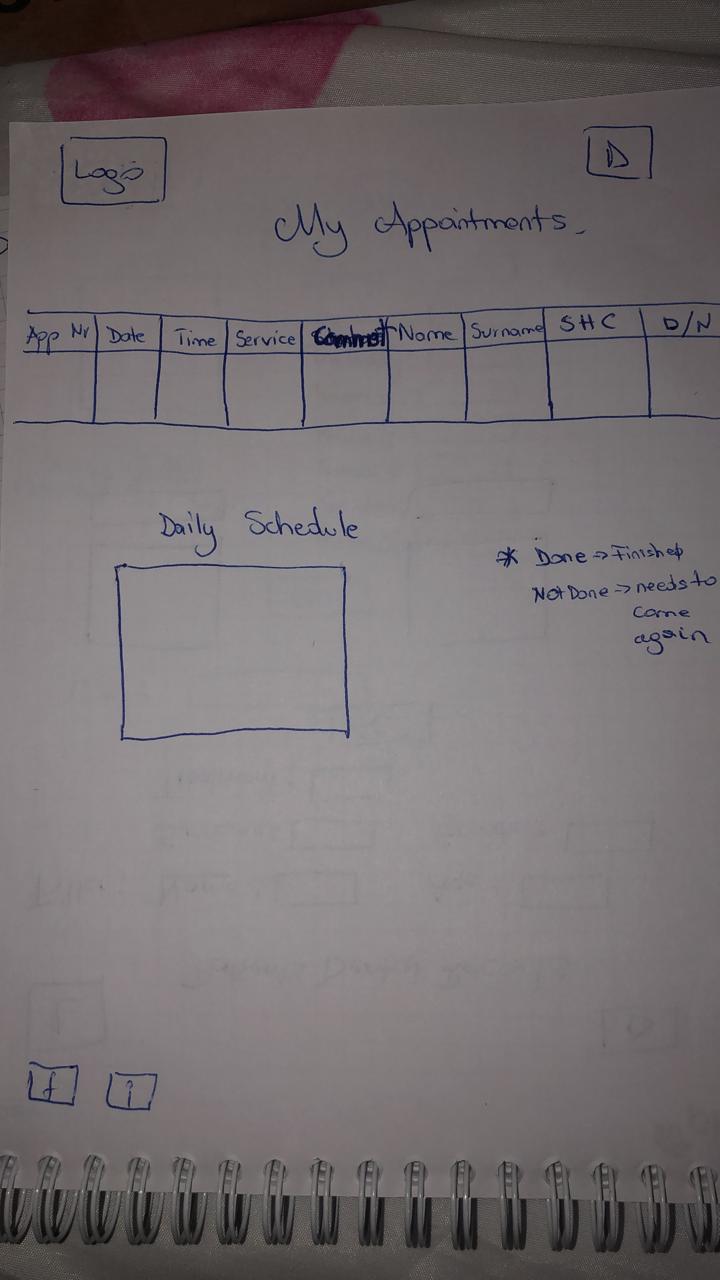 Logo
D
My Appointments.
App Nr Date Time Service Name Surname SHC D/N
Daily Schedule
* Done → Finished
Not Done → needs to
come
again
f i